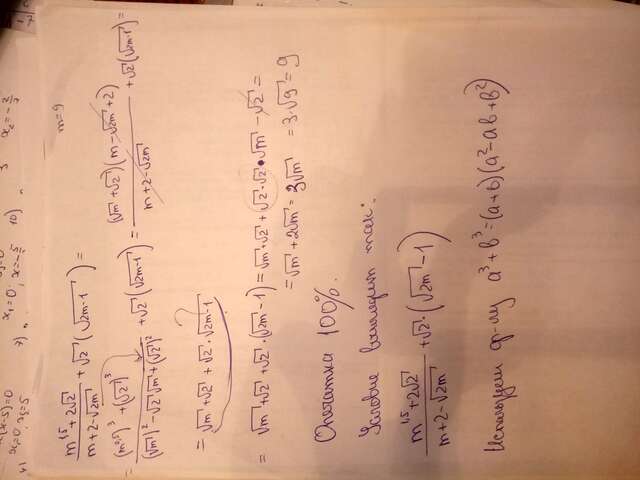 x₁=0; x₂=5
4)
7) " x₁=0; x=-5
10) "
x₂=-3/7
m=9
(m^1,5+2√2)/(m+2-√2m) + √2(√2m-1) =
= ((m^0,5)³+(√2)³)/((√m)²-√2√m+(√2)²) + √2(√2m-1) = ((√m+√2)(m-√2m+2))/(m+2-√2m) + √2(√2m-1) =
= √m+√2+√2·√2m-1 ?
= √m+√2+√2·(√2m-1) = √m+√2+√2·√2·√m-√2 =
= √m+2√m = 3√m = 3·√9 = 9
Опечатка 100%.
Условие выглядит так:
(m^1,5+2√2)/(m+2-√2m) + √2·(√2m-1)
Используем ф-лу a³+b³=(a+b)(a²-ab+b²)